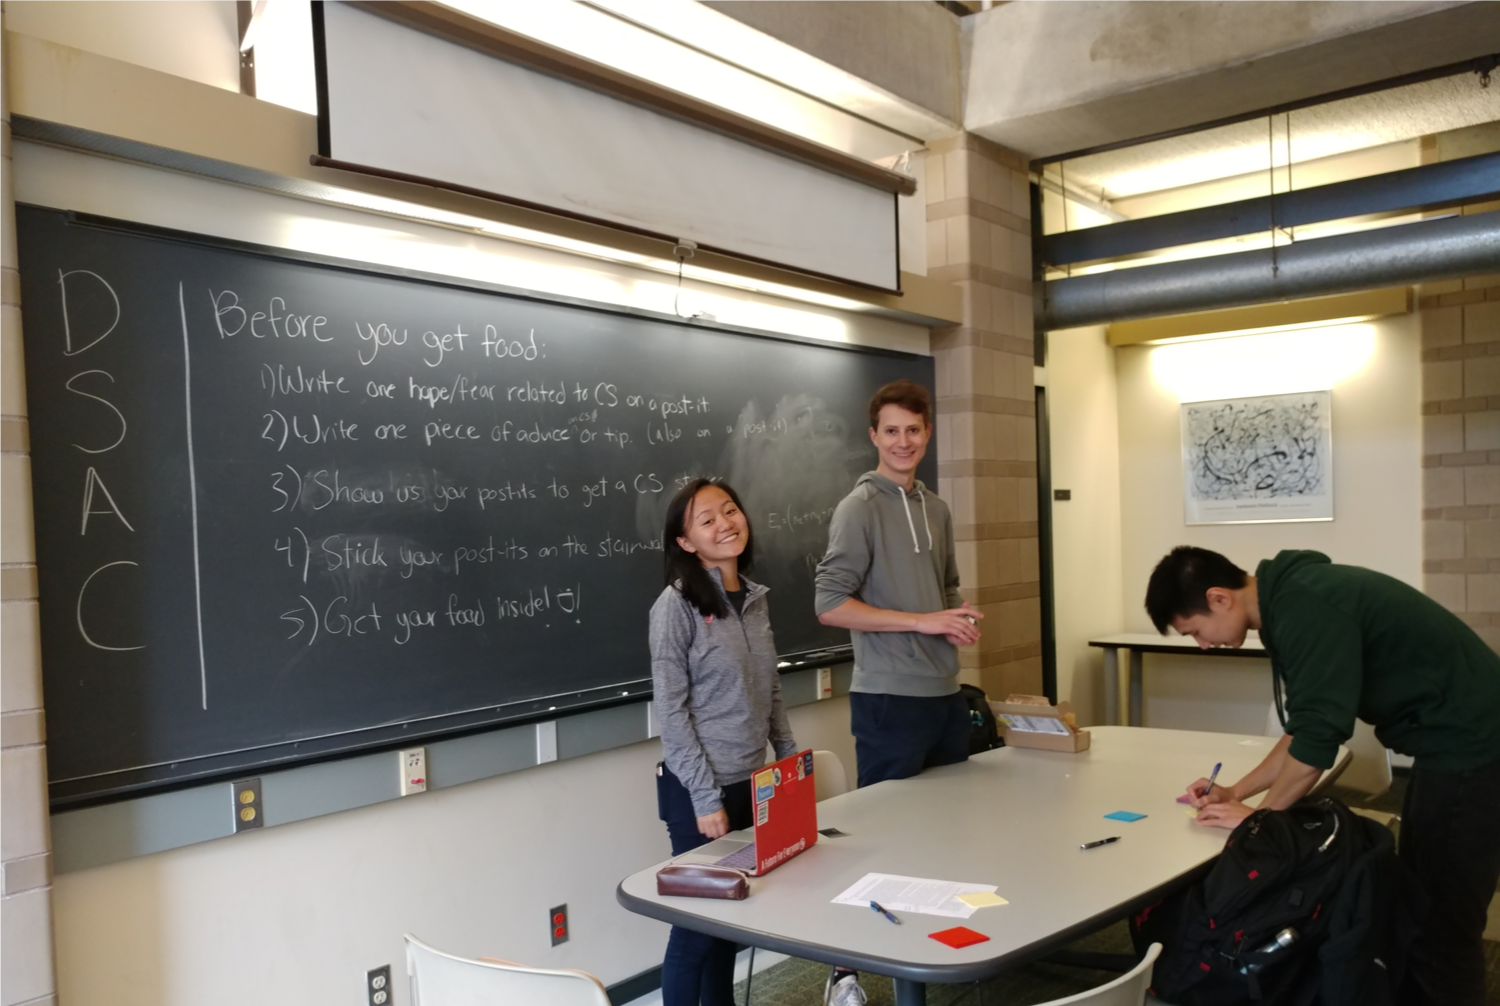 DSAC
Before you get food:
1) Write one hope/fear related to CS on a post-it
2) Write one piece of advice or tip. (also on a post-it)
3) Show us your postits to get a CS
4) Stick your post-its on the
5) Get your food inside!
A Future For Everyone